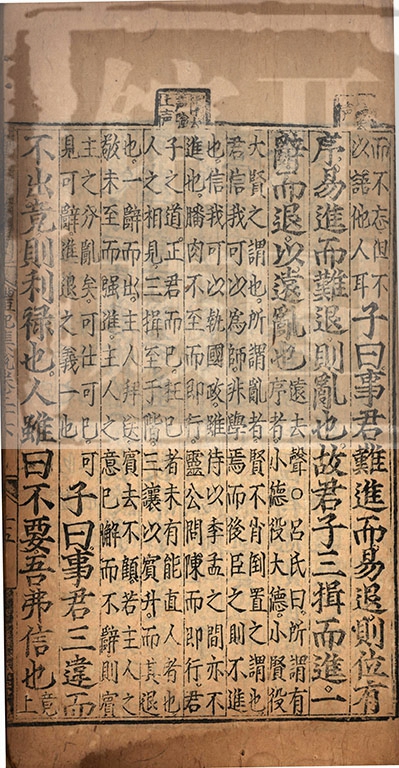 而不忘但不
以語他人耳
子曰事君難進而易退則位有
序易進而難退則亂也故君子三揖而進一
辭而退以遠亂也
遠去聲○呂氏曰所謂有
序者小德役大德小賢役
大賢之謂也所謂亂者賢不肖倒置之謂也
君信我可以為師非學焉而後臣之則不進
也信我可以執國政雖待以季孟之間亦不
進也膰肉不至而即行靈公問陳而即行君
子之道正君而已枉已者未有能直人者也
人之相見三揖至于階三讓以賓升而其退
也一辭而出主人拜送賓去不顧若主人之
敬未至而强進主人之意已懈而不辭則賓
主之分亂矣可仕可已可
見可辭進退之義一也
子曰事君三違而
不出竟則利祿也人雖曰不要吾弗信也
竟
上